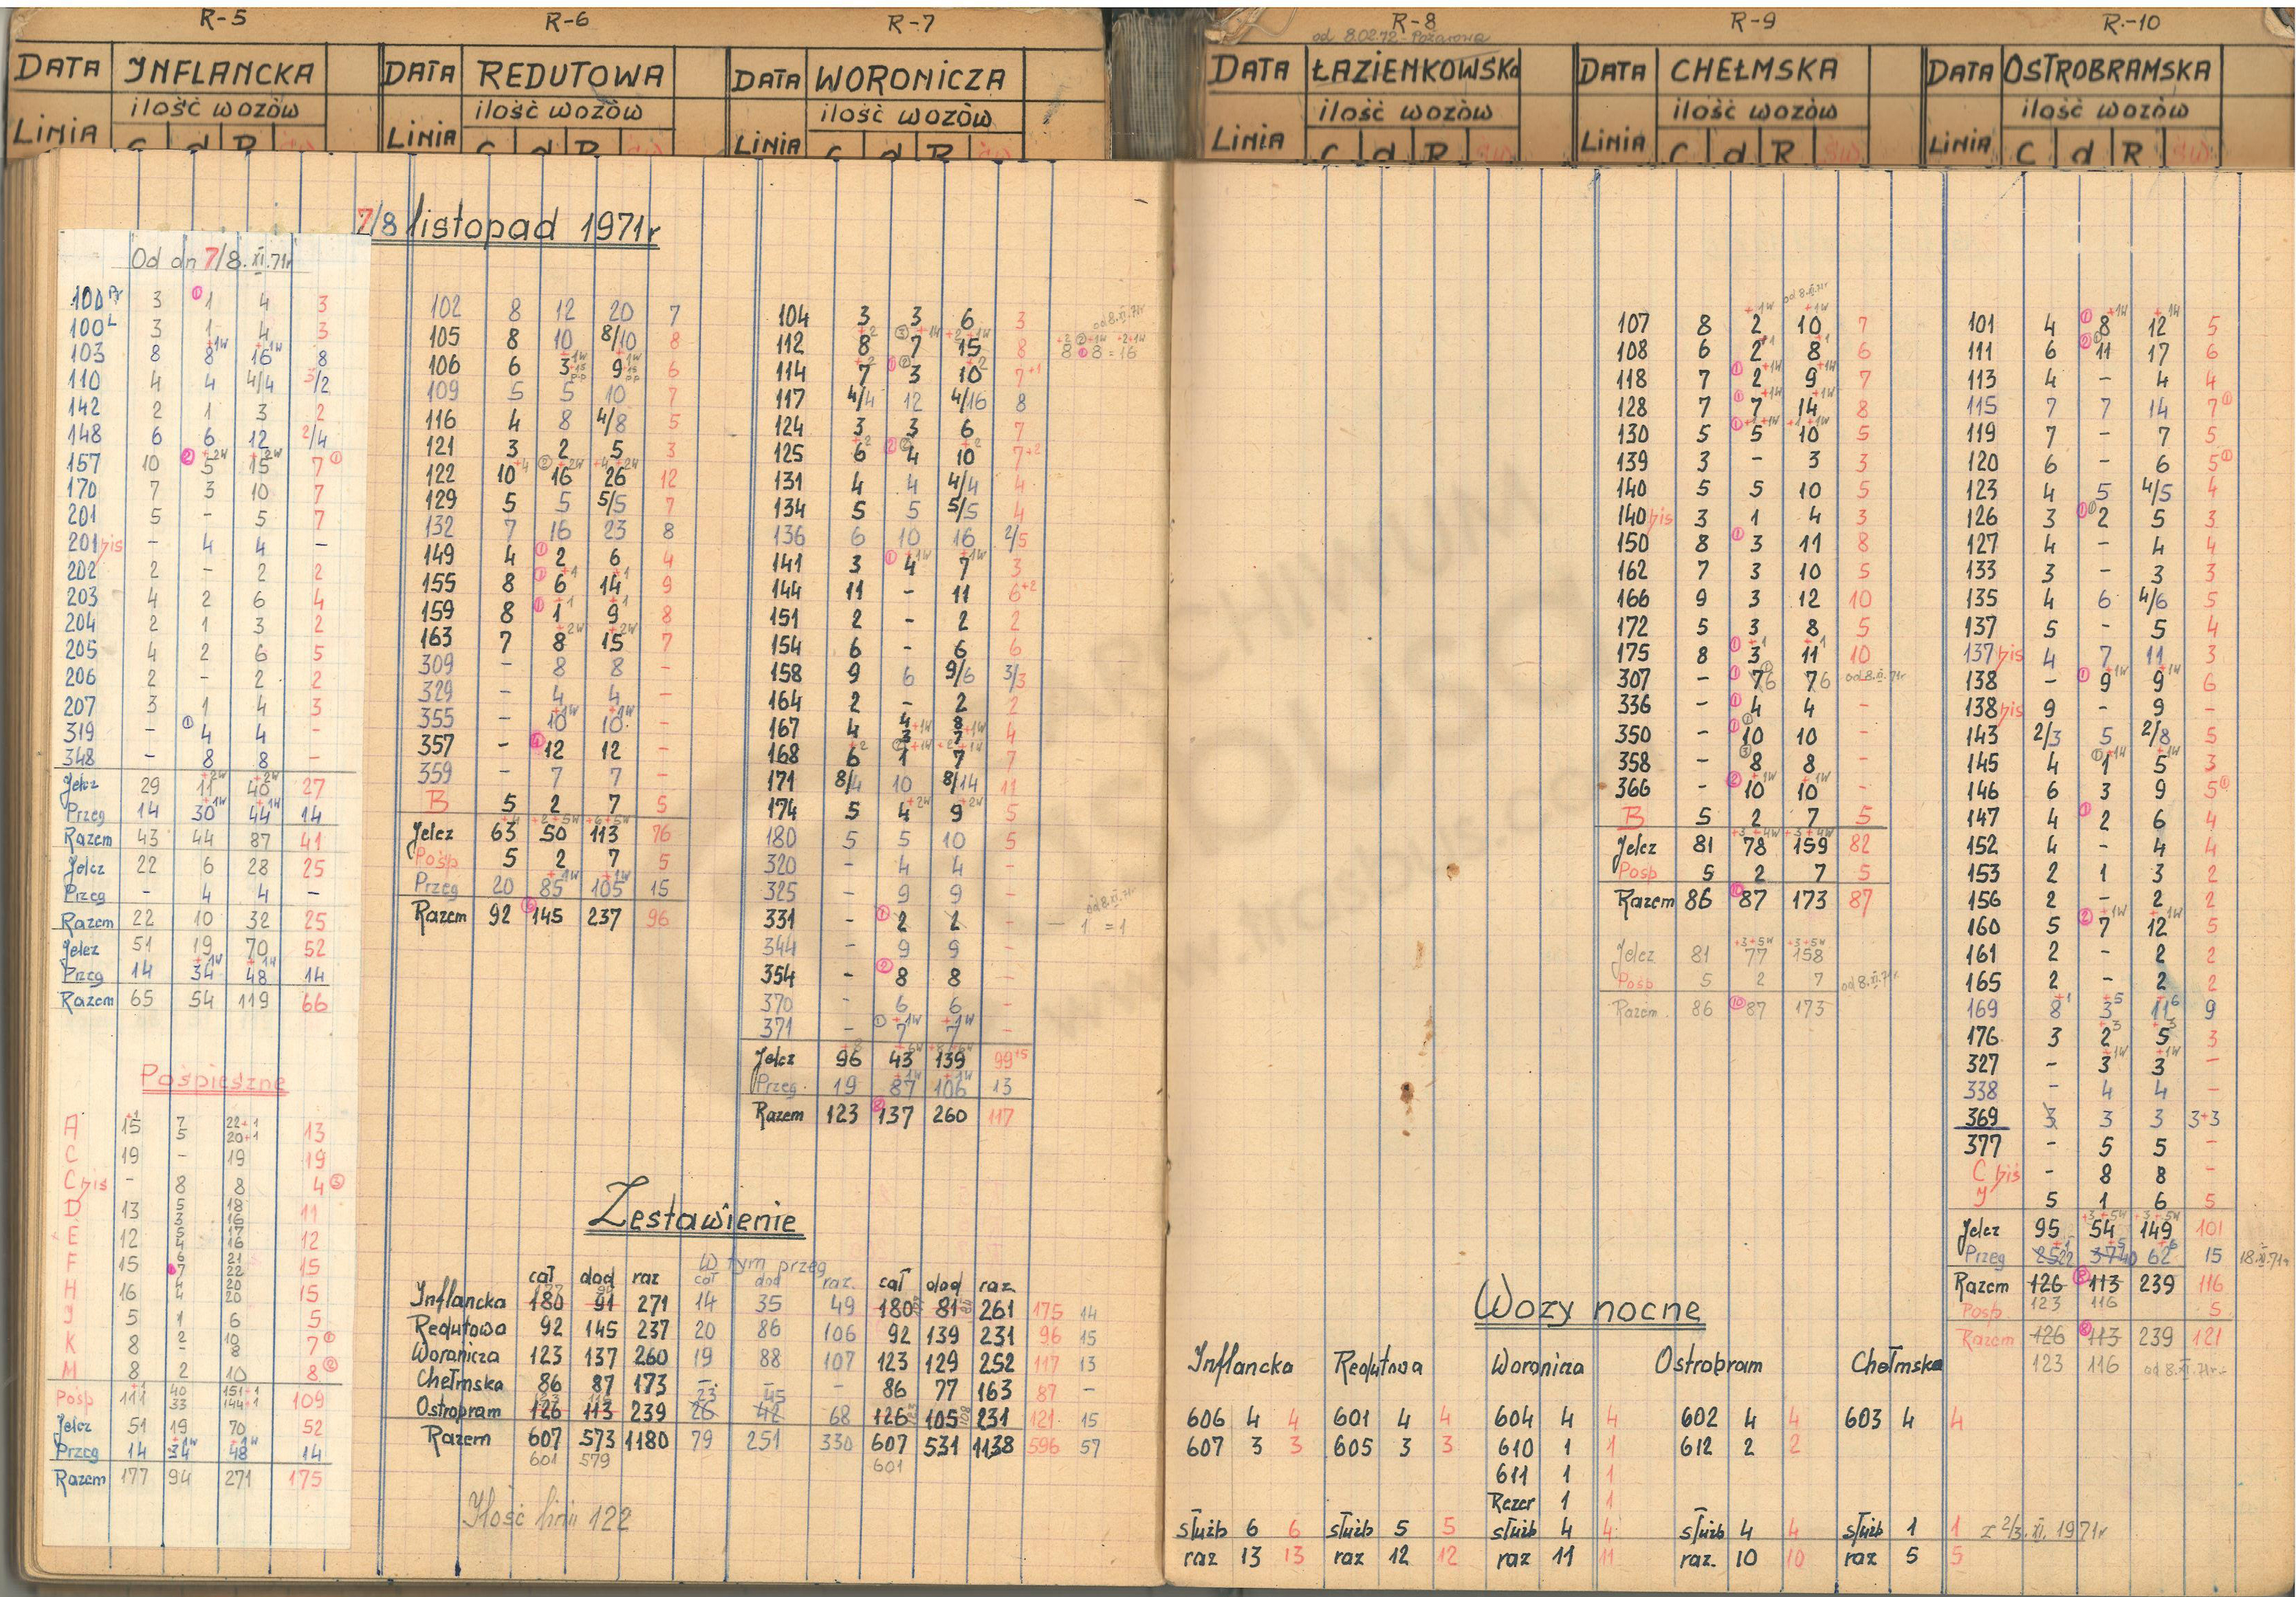 R-5
DATA INFLANCKA
ilość wozów
LINIA C d R św
Od dn 7/8.XI.71r
100 Pr 3 ① 1 4 3
100 L 3 1 4 3
103 8 8 +1W 16 +1W 8
110 4 4 4/4 3/2
142 2 1 3 2
148 6 6 12 2/4
157 10 ② 5 +2W 15 +2W 7 ①
170 7 3 10 7
201 5 - 5 7
201 bis - 4 4 -
202 2 - 2 2
203 4 2 6 4
204 2 1 3 2
205 4 2 6 5
206 2 - 2 2
207 3 1 4 3
319 - ① 4 4 -
348 - 8 8 -
Jelcz 29 11 +2W 40 +2W 27
Przeg 14 30 +1W 44 +1W 14
Razem 43 44 87 41
Jelcz 22 6 28 25
Przeg - 4 4 -
Razem 22 10 32 25
Jelcz 51 19 70 52
Przeg 14 34 +1W 48 +1W 14
Razem 65 54 119 66
Pośpieszne
A 15 +1 7 5 22+1 20+1 13
C 19 - 19 19
C bis - 8 8 4 ③
D 13 5 3 18 16 11
E 12 5 4 17 16 12
F 15 6 7 21 22 15
H 16 4 4 20 20 15
J 5 1 6 5
K 8 2 - 10 8 7 ①
M 8 2 10 8 ②
Pośp 111 +1 40 33 151+1 144+1 109
Jelcz 51 19 70 52
Przeg 14 34 +1W 48 +1W 14
Razem 177 94 271 175
R-6
DATA REDUTOWA
ilość wozów
LINIA C d R św
7/8 listopad 1971r
102 8 12 20 7
105 8 10 8/10 8
106 6 3 +1W 9 +1W 6
109 5 5 10 7
116 4 8 4/8 5
121 3 2 5 3
122 10 +4 ② 16 +2W 26 +4+2W 12
129 5 5 5/5 7
132 7 16 23 8
149 4 ① 2 6 4
155 8 ① 6 +1 14 +1 9
159 8 ① 1 +1 9 +1 8
163 7 8 +2W 15 +2W 7
309 - 8 8 -
329 - 4 4 -
355 - 10 +1W 10 +1W -
357 - ④ 12 12 -
359 - 7 7 -
B 5 2 7 5
Jelcz 63 +4 50 +2+5W 113 +6+5W 76
Pośp 5 2 7 5
Przeg 20 85 +1W 105 +1W 15
Razem 92 145 237 96
R-7
DATA WORONICZA
ilość wozów
LINIA C d R św
104 3 3 6 3
112 8 +2 ③ 7 +1W 15 +2+1W 8 od 8.XI.71r
8 ① 8 = 16
114 7 +2 ① ② 3 10 +2 7+1
117 4/4 12 4/16 8
124 3 3 6 7
125 6 +2 ② ② 4 10 +2 7+2
131 4 4 4/4 4
134 5 5 5/5 4
136 6 10 16 2/5
141 3 ① 4 +1W 7 +1W 3
144 11 - 11 6+2
151 2 - 2 2
154 6 - 6 6
158 9 6 9/6 3/3
164 2 - 2 2
167 4 4 3 +1W 8 7 +1W 4
168 6 +2 ② 1 +1W 7 +2+1W 7
171 8/4 10 8/14 11
174 5 4 +2W 9 +2W 5
180 5 5 10 5
320 - 4 4 -
325 - 9 9 -
331 - ① 2 2 - - 1 = 1 od 8.XI.71r
344 - 9 9 -
354 - ② 8 8 -
370 - 6 6 -
371 - ① 7 +1W 7 +1W -
Jelcz 96 +8 43 +6W 139 +8+6W 99 +5
Przeg. 19 87 +1W 106 +1W 13
Razem 123 137 260 117
Zestawienie
W tym przeg
cał dod raz cał dod raz. cał dod raz.
Inflancka 180 91 271 14 35 49 180 81 261 175 14
Redutowa 92 145 237 20 86 106 92 139 231 96 15
Woronicza 123 137 260 19 88 107 123 129 252 117 13
Chełmska 86 87 173 - - - 86 77 163 87 -
Ostrobram 126 113 239 26 42 68 126 105 231 121 15
123 116 23 45
Razem 607 573 1180 79 251 330 607 531 1138 596 57
601 579 601
Ilość linii 122
R-8
od 8.02.72 - Pożarowa
DATA ŁAZIENKOWSKA
ilość wozów
LINIA C d R św
R-9
DATA CHEŁMSKA
ilość wozów
LINIA C d R św
od 8.XI.71r
107 8 2 +1W 10 +1W 7
108 6 2 +1 8 +1 6
118 7 ① 2 +1W 9 +1W 7
128 7 ① 7 +1W 14 +1W 8
130 5 ① 5 +1+1W 10 +1+1W 5
139 3 - 3 3
140 5 5 10 5
140 bis 3 1 4 3
150 8 ① 3 11 8
162 7 3 10 5
166 9 3 12 10
172 5 3 8 5
175 8 ① 3 +1 11 +1 10
307 - ① 7 6 7 6 od 8.XI.71r
336 - ① 4 4 -
350 - ① 10 10 -
358 - ③ 8 8 -
366 - ② 10 +1W 10 +1W -
B 5 2 7 5
Jelcz 81 78 +3+4W 159 +3+4W 82
Pośp 5 2 7 5
Razem 86 ⑩ 87 173 87
Jelcz 81 77 +3+5W 158 +3+5W
Pośp 5 2 7 od 8.XI.71r.
Razem. 86 ⑩ 87 173
R.-10
DATA OSTROBRAMSKA
ilość wozów
LINIA C d R św
101 4 ① 8 +1W 12 +1W 5
111 6 ② 11 17 6
113 4 - 4 4
115 7 7 14 7 ①
119 7 - 7 5
120 6 - 6 5 ①
123 4 5 4/5 4
126 3 ① ① 2 5 3
127 4 - 4 4
133 3 - 3 3
135 4 6 4/6 5
137 5 - 5 4
137 bis 4 7 11 3
138 - ① 9 +1W 9 +1W 6
138 bis 9 - 9 -
143 2/3 5 2/8 5
145 4 ① 1 +1W 5 +1W 3
146 6 3 9 5 ①
147 4 ① 2 6 4
152 4 - 4 4
153 2 1 3 2
156 2 - 2 2
160 5 ② 7 +1W 12 +1W 5
161 2 - 2 2
165 2 - 2 2
169 8 +1 3 +5 11 +6 9
176 3 2 +3 5 +3 3
327 - 3 +1W 3 +1W -
338 - 4 4 -
369 3 3 3 3+3
377 - 5 5 -
C bis - 8 8 -
J 5 1 6 5
Jelcz 95 54 +3+5W 149 +3+5W 101
Przeg 25 22 +1 37 40 +5 62 +6 15 18.XI.71r
Razem 126 113 239 116
Posp. 123 116 5
Razem 126 113 239 121
123 116 od 8.XI.71r.
Wozy nocne
Inflancka Redutowa Woronicza Ostrobram Chełmska
606 4 4 601 4 4 604 4 4 602 4 4 603 4 4
607 3 3 605 3 3 610 1 1 612 2 2
611 1 1
Rezer 1 1
służb 6 6 służb 5 5 służb 4 4 służb 4 4 służb 1 1 z 2/3.XI.1971r
raz 13 13 raz 12 12 raz 11 11 raz. 10 10 raz 5 5